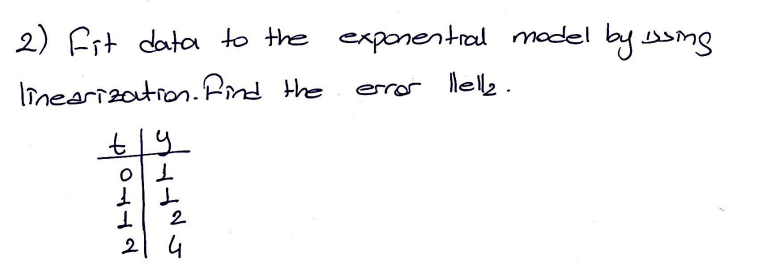 2) Fit data to the exponential model by using
linearization. Find the error ||e||2.
t | y
0 | 1
1 | 1
1 | 2
2 | 4